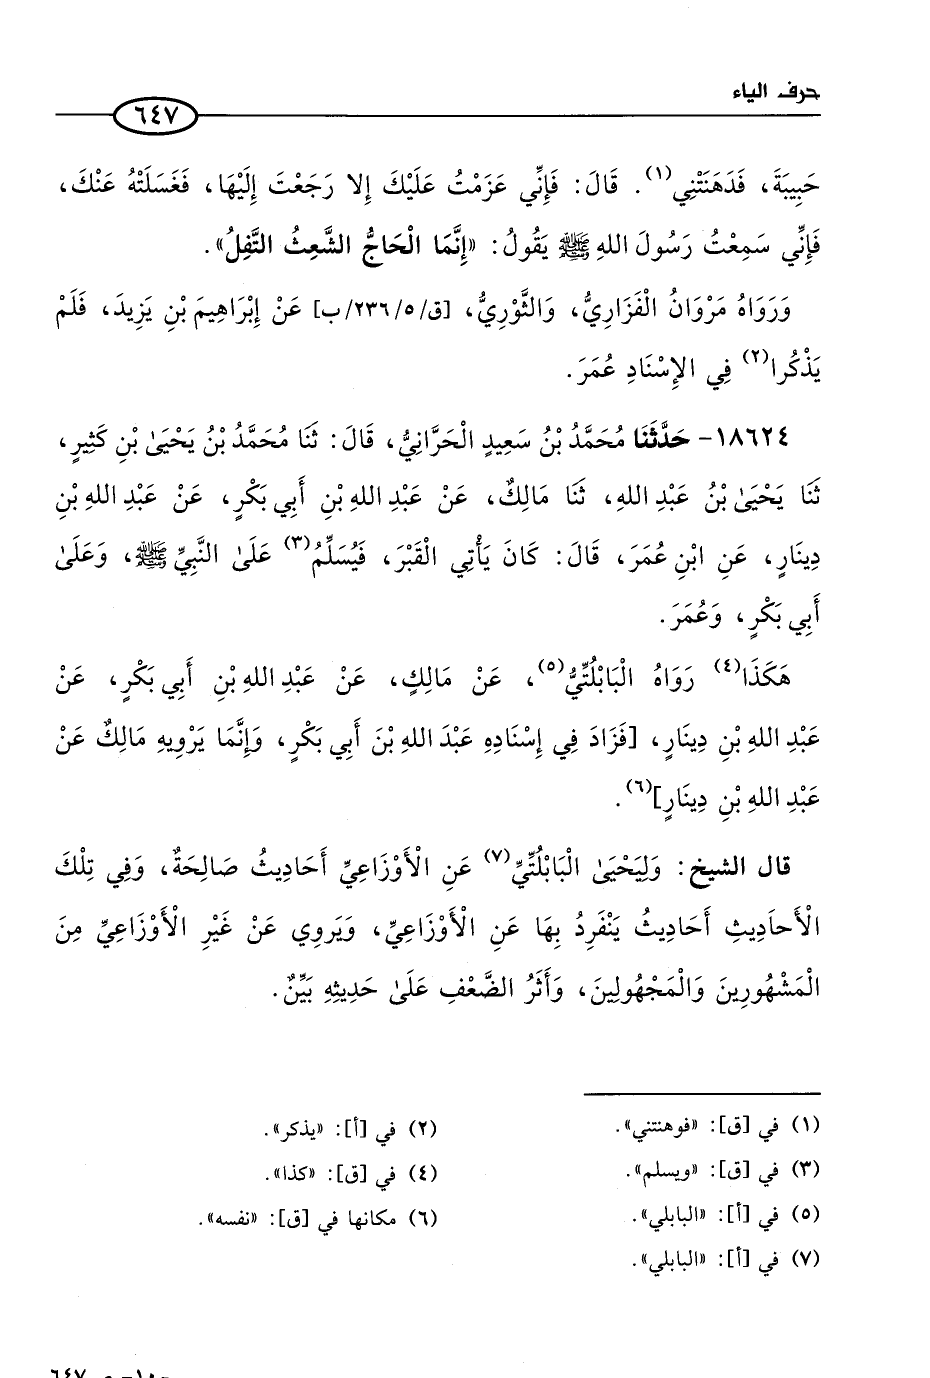 حرف الياء
٦٤٧
حَبِيبَةَ، فَدَهَنَتْنِي(١). قَالَ: فَإِنِّي عَزَمْتُ عَلَيْكَ إِلا رَجَعْتَ إِلَيْهَا، فَغَسَلَتْهُ عَنْكَ،
فَإِنِّي سَمِعْتُ رَسُولَ اللهِ ﷺ يَقُولُ: «إِنَّمَا الْحَاجُّ الشَّعِثُ التَّفِلُ».
وَرَوَاهُ مَرْوَانُ الْفَزَارِيُّ، وَالثَّوْرِيُّ، [ق/٢٣٦/٥/ب] عَنْ إِبْرَاهِيمَ بْنِ يَزِيدَ، فَلَمْ
يَذْكُرا(٢) فِي الإِسْنَادِ عُمَرَ.
١٨٦٢٤- حَدَّثَنَا مُحَمَّدُ بْنُ سَعِيدٍ الْحَرَّانِيُّ، قَالَ: ثَنَا مُحَمَّدُ بْنُ يَحْيَىٰ بْنِ كَثِيرٍ،
ثَنَا يَحْيَىٰ بْنُ عَبْدِ اللهِ، ثَنَا مَالِكٌ، عَنْ عَبْدِ اللهِ بْنِ أَبِي بَكْرٍ، عَنْ عَبْدِ اللهِ بْنِ
دِينَارٍ، عَنِ ابْنِ عُمَرَ، قَالَ: كَانَ يَأْتِي الْقَبْرَ، فَيُسَلِّمُ(٣) عَلَىٰ النَّبِيِّ ﷺ، وَعَلَىٰ
أَبِي بَكْرٍ، وَعُمَرَ.
هَكَذَا(٤) رَوَاهُ الْبَابْلُتِّيُّ(٥)، عَنْ مَالِكٍ، عَنْ عَبْدِ اللهِ بْنِ أَبِي بَكْرٍ، عَنْ
عَبْدِ اللهِ بْنِ دِينَارٍ، [فَزَادَ فِي إِسْنَادِهِ عَبْدَ اللهِ بْنَ أَبِي بَكْرٍ، وَإِنَّمَا يَرْوِيهِ مَالِكٌ عَنْ
عَبْدِ اللهِ بْنِ دِينَارٍ](٦).
قال الشيخ: وَلِيَحْيَىٰ الْبَابْلُتِّيِّ(٧) عَنِ الْأَوْزَاعِيِّ أَحَادِيثُ صَالِحَةٌ، وَفِي تِلْكَ
الْأَحَادِيثِ أَحَادِيثُ يَنْفَرِدُ بِهَا عَنِ الْأَوْزَاعِيِّ، وَيَرْوِي عَنْ غَيْرِ الْأَوْزَاعِيِّ مِنَ
الْمَشْهُورِينَ وَالْمَجْهُولِينَ، وَأَثَرُ الضَّعْفِ عَلَىٰ حَدِيثِهِ بَيِّنٌ.
(١) في [ق]: «فوهنتني».
(٢) في [أ]: «يذكر».
(٣) في [ق]: «ويسلم».
(٤) في [ق]: «كذا».
(٥) في [أ]: «البابلي».
(٦) مكانها في [ق]: «نفسه».
(٧) في [أ]: «البابلي».